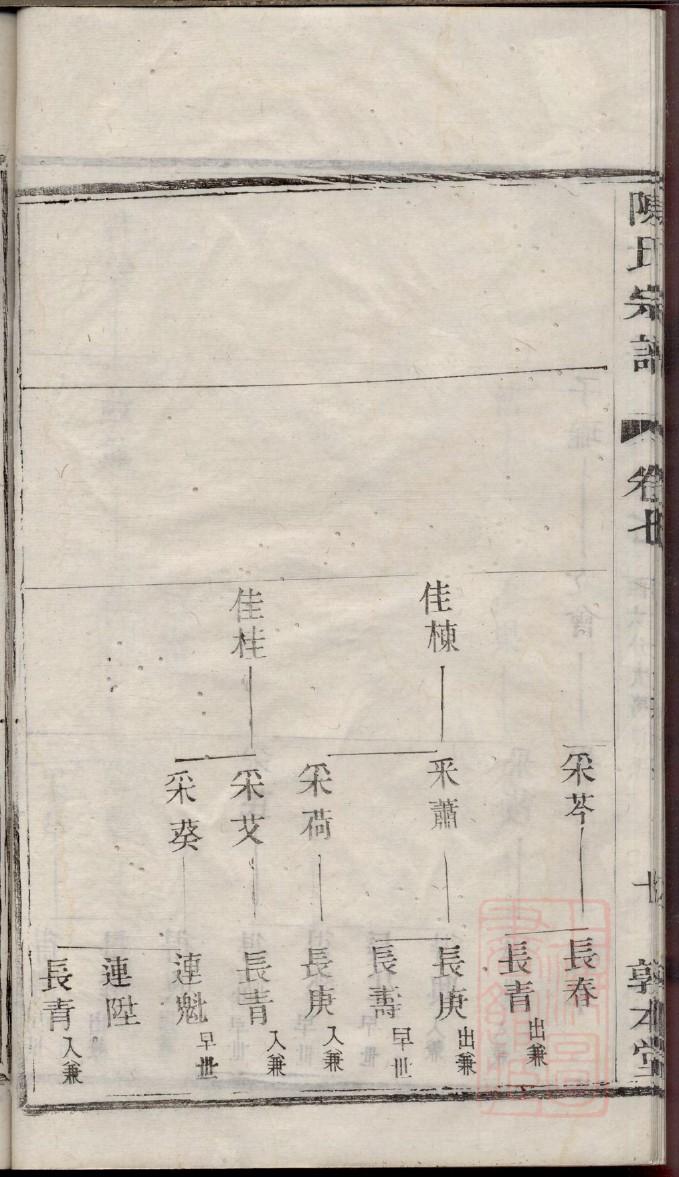 陳氏宗譜
卷七
敦本堂
佳棟
佳桂
采芩
采蕭
采荷
采艾
采葵
長春
長青 出兼
長庚 出兼
長壽 早世
長庚 入兼
長青 入兼
連魁 早世
連陞
長青 入兼